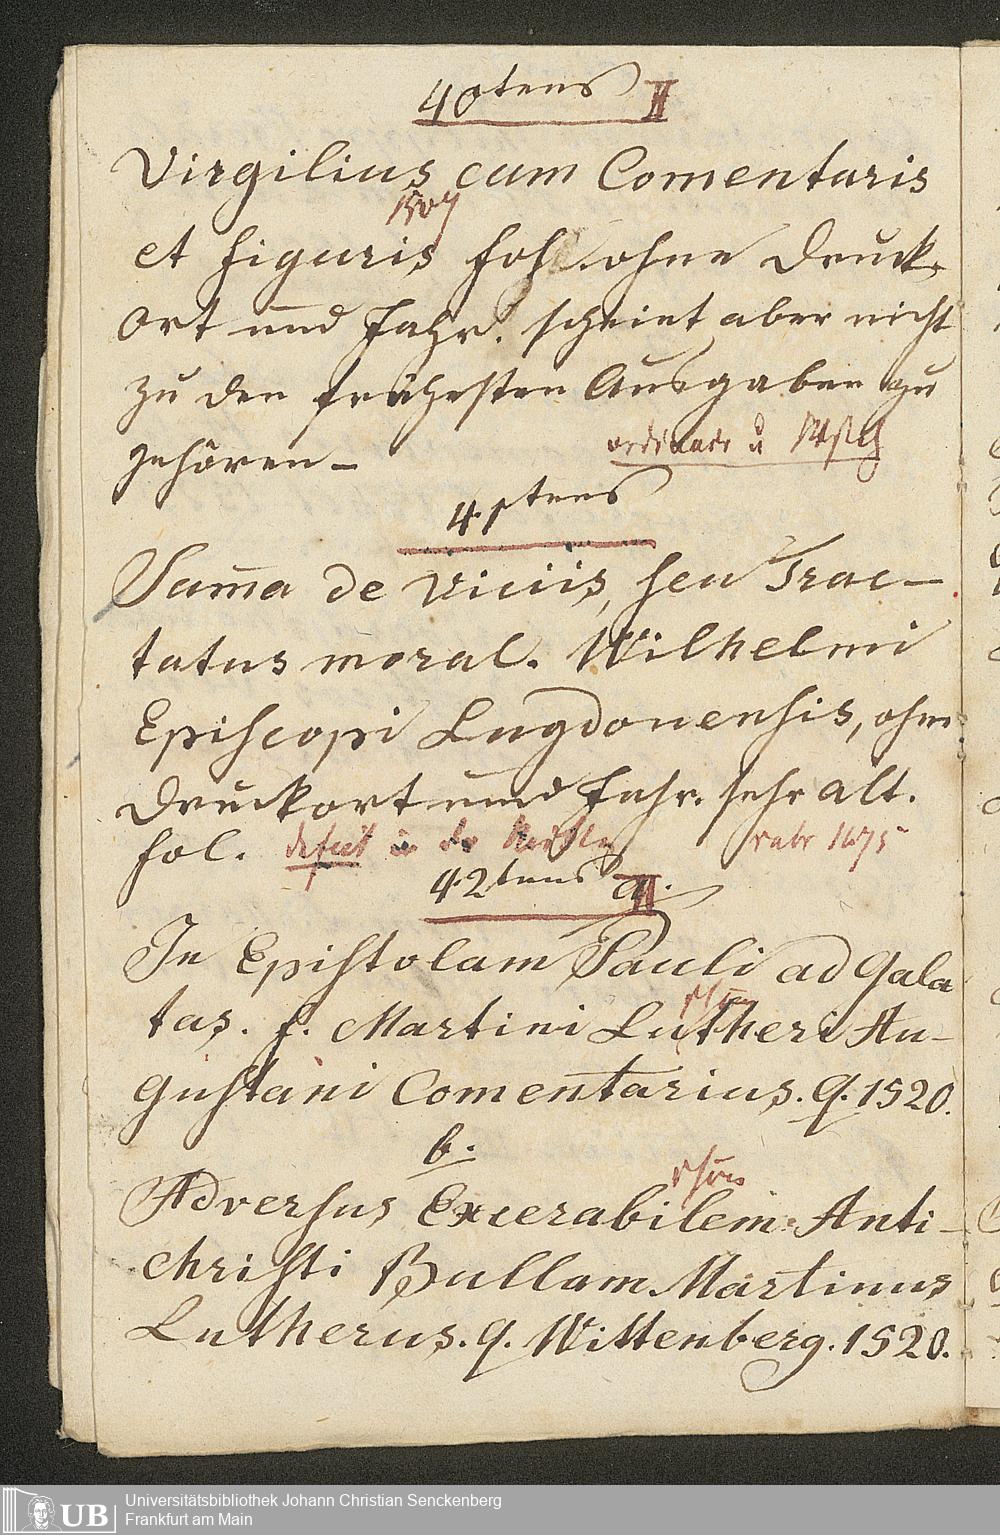 40tens II
Virgilius cum Comentaris
1507
et figuris fol. ohne Druck-
ort und Jahr. scheint aber nicht
zu den frühesten Ausgaben zu
gehören –
ordinair u
41tens
Sum̅a de viciis, seu Trac-
tatus moral. Wilhelmi
Episcopi Lugdonensis, ohne
Druckort und Jahr. sehr alt.
fol. defect in der 1475
42tens a. II
In Epistolam Pauli ad Gala
tas. f. Martini Lutheri Au-
gustani Com̅entarius. q. 1520.
b.
Adversus Excerabilem Anti-
christi Bullam Martinus
Lutherus. q. Wittenberg. 1520.
UB Universitätsbibliothek Johann Christian Senckenberg
Frankfurt am Main